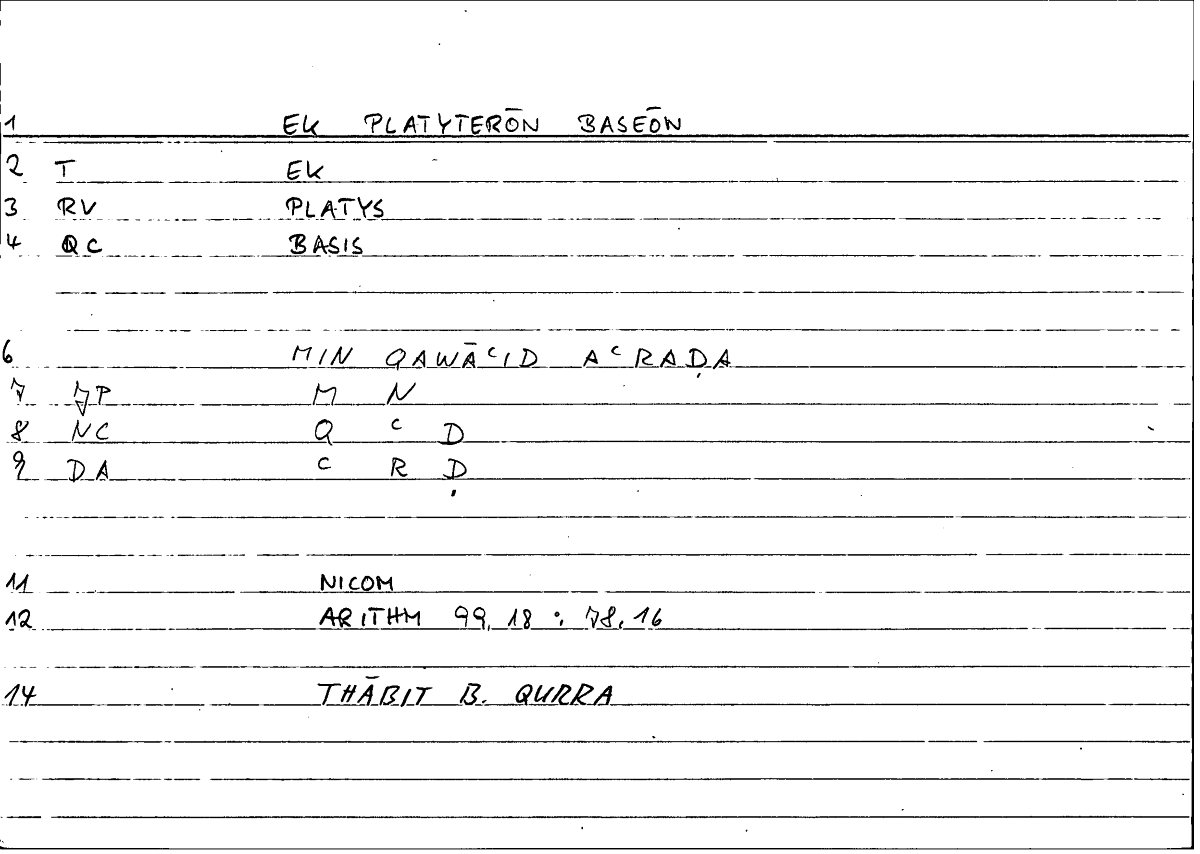 1 EK PLATYTERŌN BASEŌN
2 T EK
3 RV PLATYS
4 QC BASIS
6 MIN QAWĀᶜID AᶜRAḌA
7 JP M N
8 NC Q ᶜ D
9 DA ᶜ R Ḍ
11 NICOM
12 ARITHM 99,18 : 78,16
14 THĀBIT B. QURRA